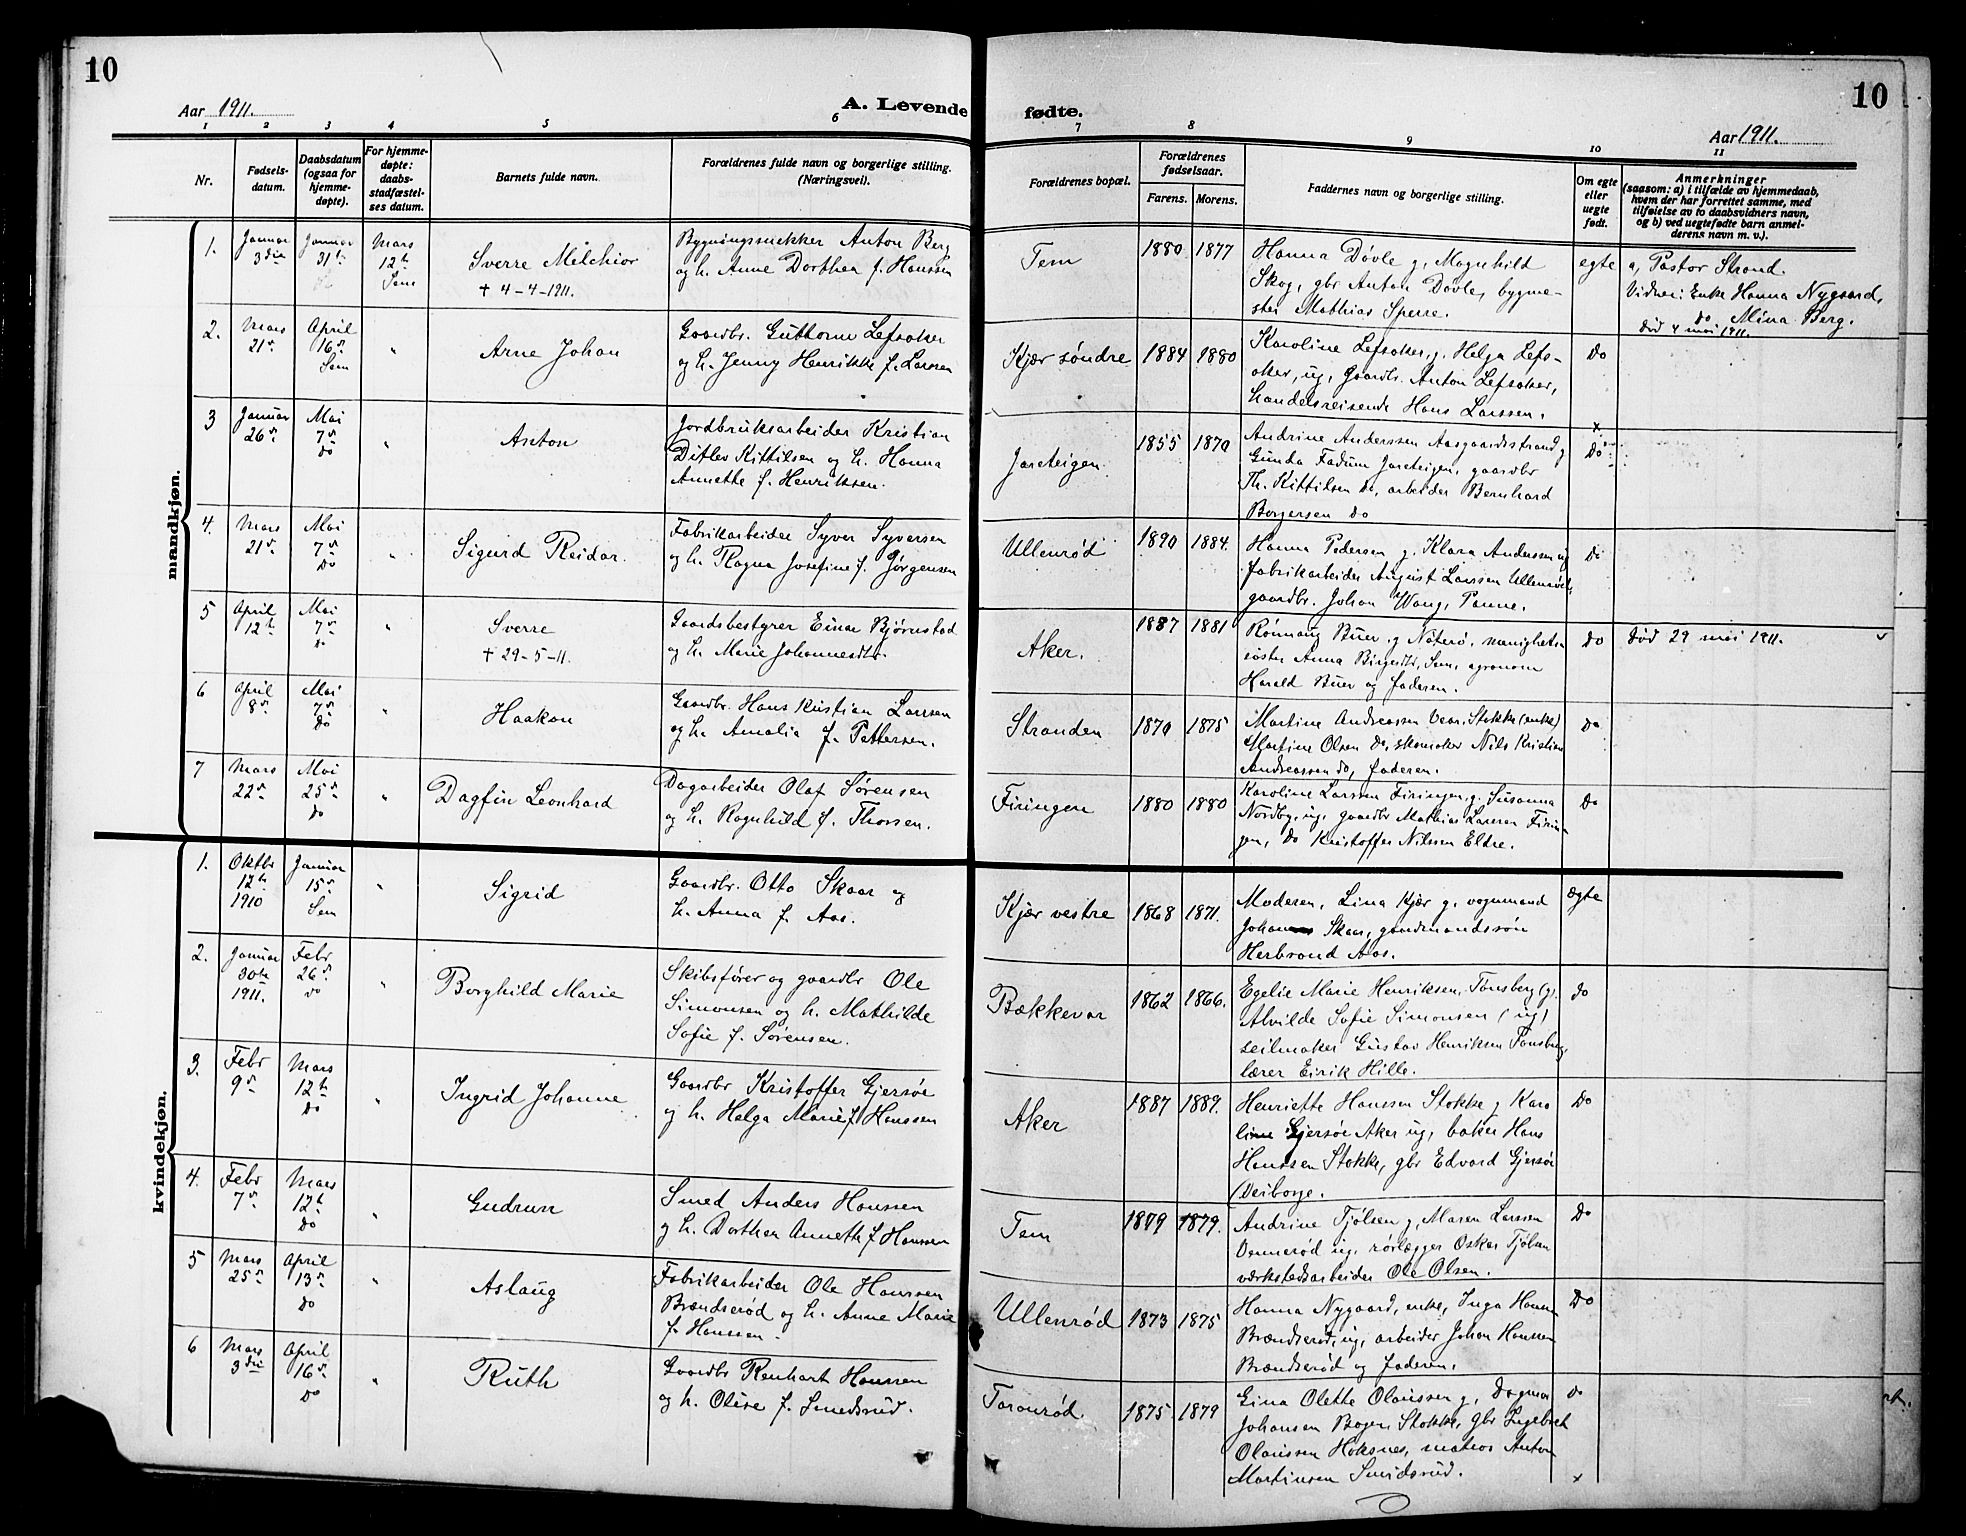 10
Aar 1911.
A. Levende fødte.
10
Aar 1911.
1 2 3 4 5 6 7 8 9 10 11
Nr.
Fødsels-
datum.
Daabsdatum
(ogsaa for
hjemme-
døpte).
For hjemme-
døpte:
daabs-
stadfæstel-
ses datum.
Barnets fulde navn.
Forældrenes fulde navn og borgerlige stilling.
(Næringsvei).
Forældrenes bopæl.
Forældrenes
fødselsaar.
Farens. Morens.
Faddernes navn og borgerlige stilling.
Om egte
eller
uegte
født.
Anmerkninger
(saasom: a) i tilfælde av hjemmedaab,
hvem der har forrettet samme, med
tilføielse av to daabsvidners navn,
og b) ved uegtefødte barn anmel-
derens navn m. v.).
mandkjøn.
1.
Januar
3die
Januar
31te
Mars
12te
Sem
Sverre Milchior
+ 4-4-1911.
Bygningssnekker Anton Berg
og h. Anne Dorthea f. Hanssen
Tem
1880 1877
Hanna Døvle g, Magnhild
Skog, gbr Anton Døvle, bygme-
ster Mathias Sperre.
egte
a, Pastor Strand.
Vidner: Enke Hanna Nygaard,
do Mina Berg.
død 4 mai 1911.
2.
Mars
21de
April
16de
Sem
"
Arne Johan
Gaardbr. Guttorm Lefsaker
og h. Jenny Henrikke f. Larssen
Kjær søndre
1884 1880
Karoline Lefsaker, g. Helga Lefs-
aker, ug, gaardbr. Anton Lefsaker,
handelsreisende Hans Larssen.
Do
3
Januar
26de
Mai
7de
Do
"
Anton
Jordbruksarbeider Kristian
Ditlev Kittilsen og h. Hanna
Annette f. Henriksen.
Jareteigen
1855 1870
Andrine Anderssen Aasgaardsstrand g
Gunda Fadum Jareteigen, gaardbr
Th. Kittilsen do, arbeider Bernhard
Borgersen do
x
Do
4.
Mars
21de
Mai
7de
Do
"
Sigurd Reidar.
Fabrikarbeider Syver Syversen
og h. Ragna Josefine f. Jørgensen
Ullenrød
1890 1884.
Hanna Pedersen g, Klara Anderssen ug
fabrikarbeider August Larssen Ullenrød,
gaardbr. Johan Wang, Panne.
Do
5
April
12te
Mai
7de
do
"
Sverre
+ 29-5-11.
Gaardsbestyrer Einar Bjørnstad
og h. Marie Johannesdtr.
Aker.
1887 1881
Rønnaug Buer, g Nøterø, menighets-
søster Anna Birgesdtr, Sem, agronom
Harald Buer og faderen.
Do
død 29 mai 1911.
6
April
8de
Mai
7de
Do
"
Haakon
Gaardbr. Hans Kristian Larssen
og h. Amalia f. Pettersen.
Stranden
1870 1875
Martine Andreassen Vear, Stokke (enke)
Martine Olsen do, skomaker Nils Kristian
Andreassen do, faderen.
Do
7
Mars
22de
Mai
25de
do
"
Dagfin Leonhard
Dagarbeider Olaf Sørensen
og h. Ragnhild f. Thorsen.
Firingen
1880 1880
Karoline Larssen Firingen, g. Susanna
Nordby, ug, gaardbr Mathias Larssen Firin-
gen, do Kristoffer Nilssen Eldre.
Do
kvindekjøn.
1.
Oktbr
12te
1910
Januar
15de
Sem
"
Sigrid
Gaardbr. Otto Skaar og
h. Anna f. Aas.
Kjær vestre
1868 1871.
Moderen, Lina Kjær g, vognmand
Johan Skaar, gaardmandssøn
Herbrand Aas.
ægte
2.
Januar
30te
1911.
Febr
26de
do
"
Borghild Marie
Skibsfører og gaardbr Ole
Simonsen og h. Mathilde
Sofie f. Sørensen.
Bækkevar
1862 1866.
Egelie Marie Henriksen, Tønsberg (g).
Alvilde Sofie Simonsen (ug)
seilmaker Gustav Henriksen Tønsberg,
lærer Eirik Hille.
do
3.
Febr
9de
Mars
12te
Do
"
Ingrid Johanne
Gaardbr Kristoffer Gjersøe
og h. Helga Marie f Hanssen
Aker
1887 1889.
Henriette Hanssen Stokke g Karo
line Gjersøe Aker ug, baker Hans
Hanssen Stokke, gbr Edvard Gjersøe
Veiborge.
Do
4.
Febr
7de
Mars
12te
Do
"
Gudrun
Smed Anders Hanssen
og h. Dorthea Anneth f Hanssen
Tem
1879 1879.
Andrine Tjølsen g, Maren Larssen
Vennerød ug, rørlægger Oskar Tjølsen
værkstedsarbeider Ole Olsen.
Do
5
Mars
25de
April
13de
Do
"
Aslaug
Fabrikarbeider Ole Hanssen
Brændserød og h. Anne Marie
f. Hanssen.
Ullenrød
1873 1875
Hanna Nygaard, enke, Inga Hanssen
Brændserød, ug, arbeider Johan Hanssen
Brændserød og faderen.
Do
6
Mars
3die
April
16de
Do
"
Ruth
Gaardbr Renhart Hanssen
og h. Olise f. Smedsrud.
Taranrød
1875 1879
Gina Olette Olaussen g, Dagmar
Johansen Bogen Stokke, gbr Ingebret
Olaussen Hoksnes, matros Anton
Martinsen Smidsrud.
Do
x